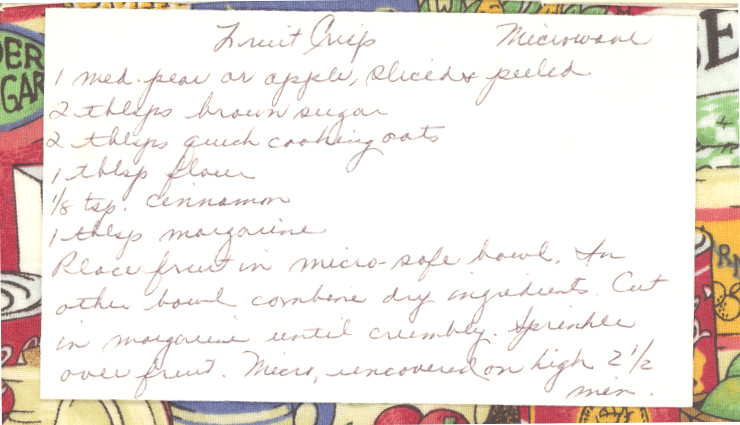 Fruit Crisp Microwave
1 med. pear or apple, sliced & peeled
2 tblsps brown sugar
2 tblsps quick cooking oats
1 tblsp flour
1/8 tsp. cinnamon
1 tblsp margarine
Place fruit in micro-safe bowl. In
other bowl combine dry ingredients. Cut
in margarine until crumbly. Sprinkle
over fruit. Micro, uncovered on high 2 1/2
min.